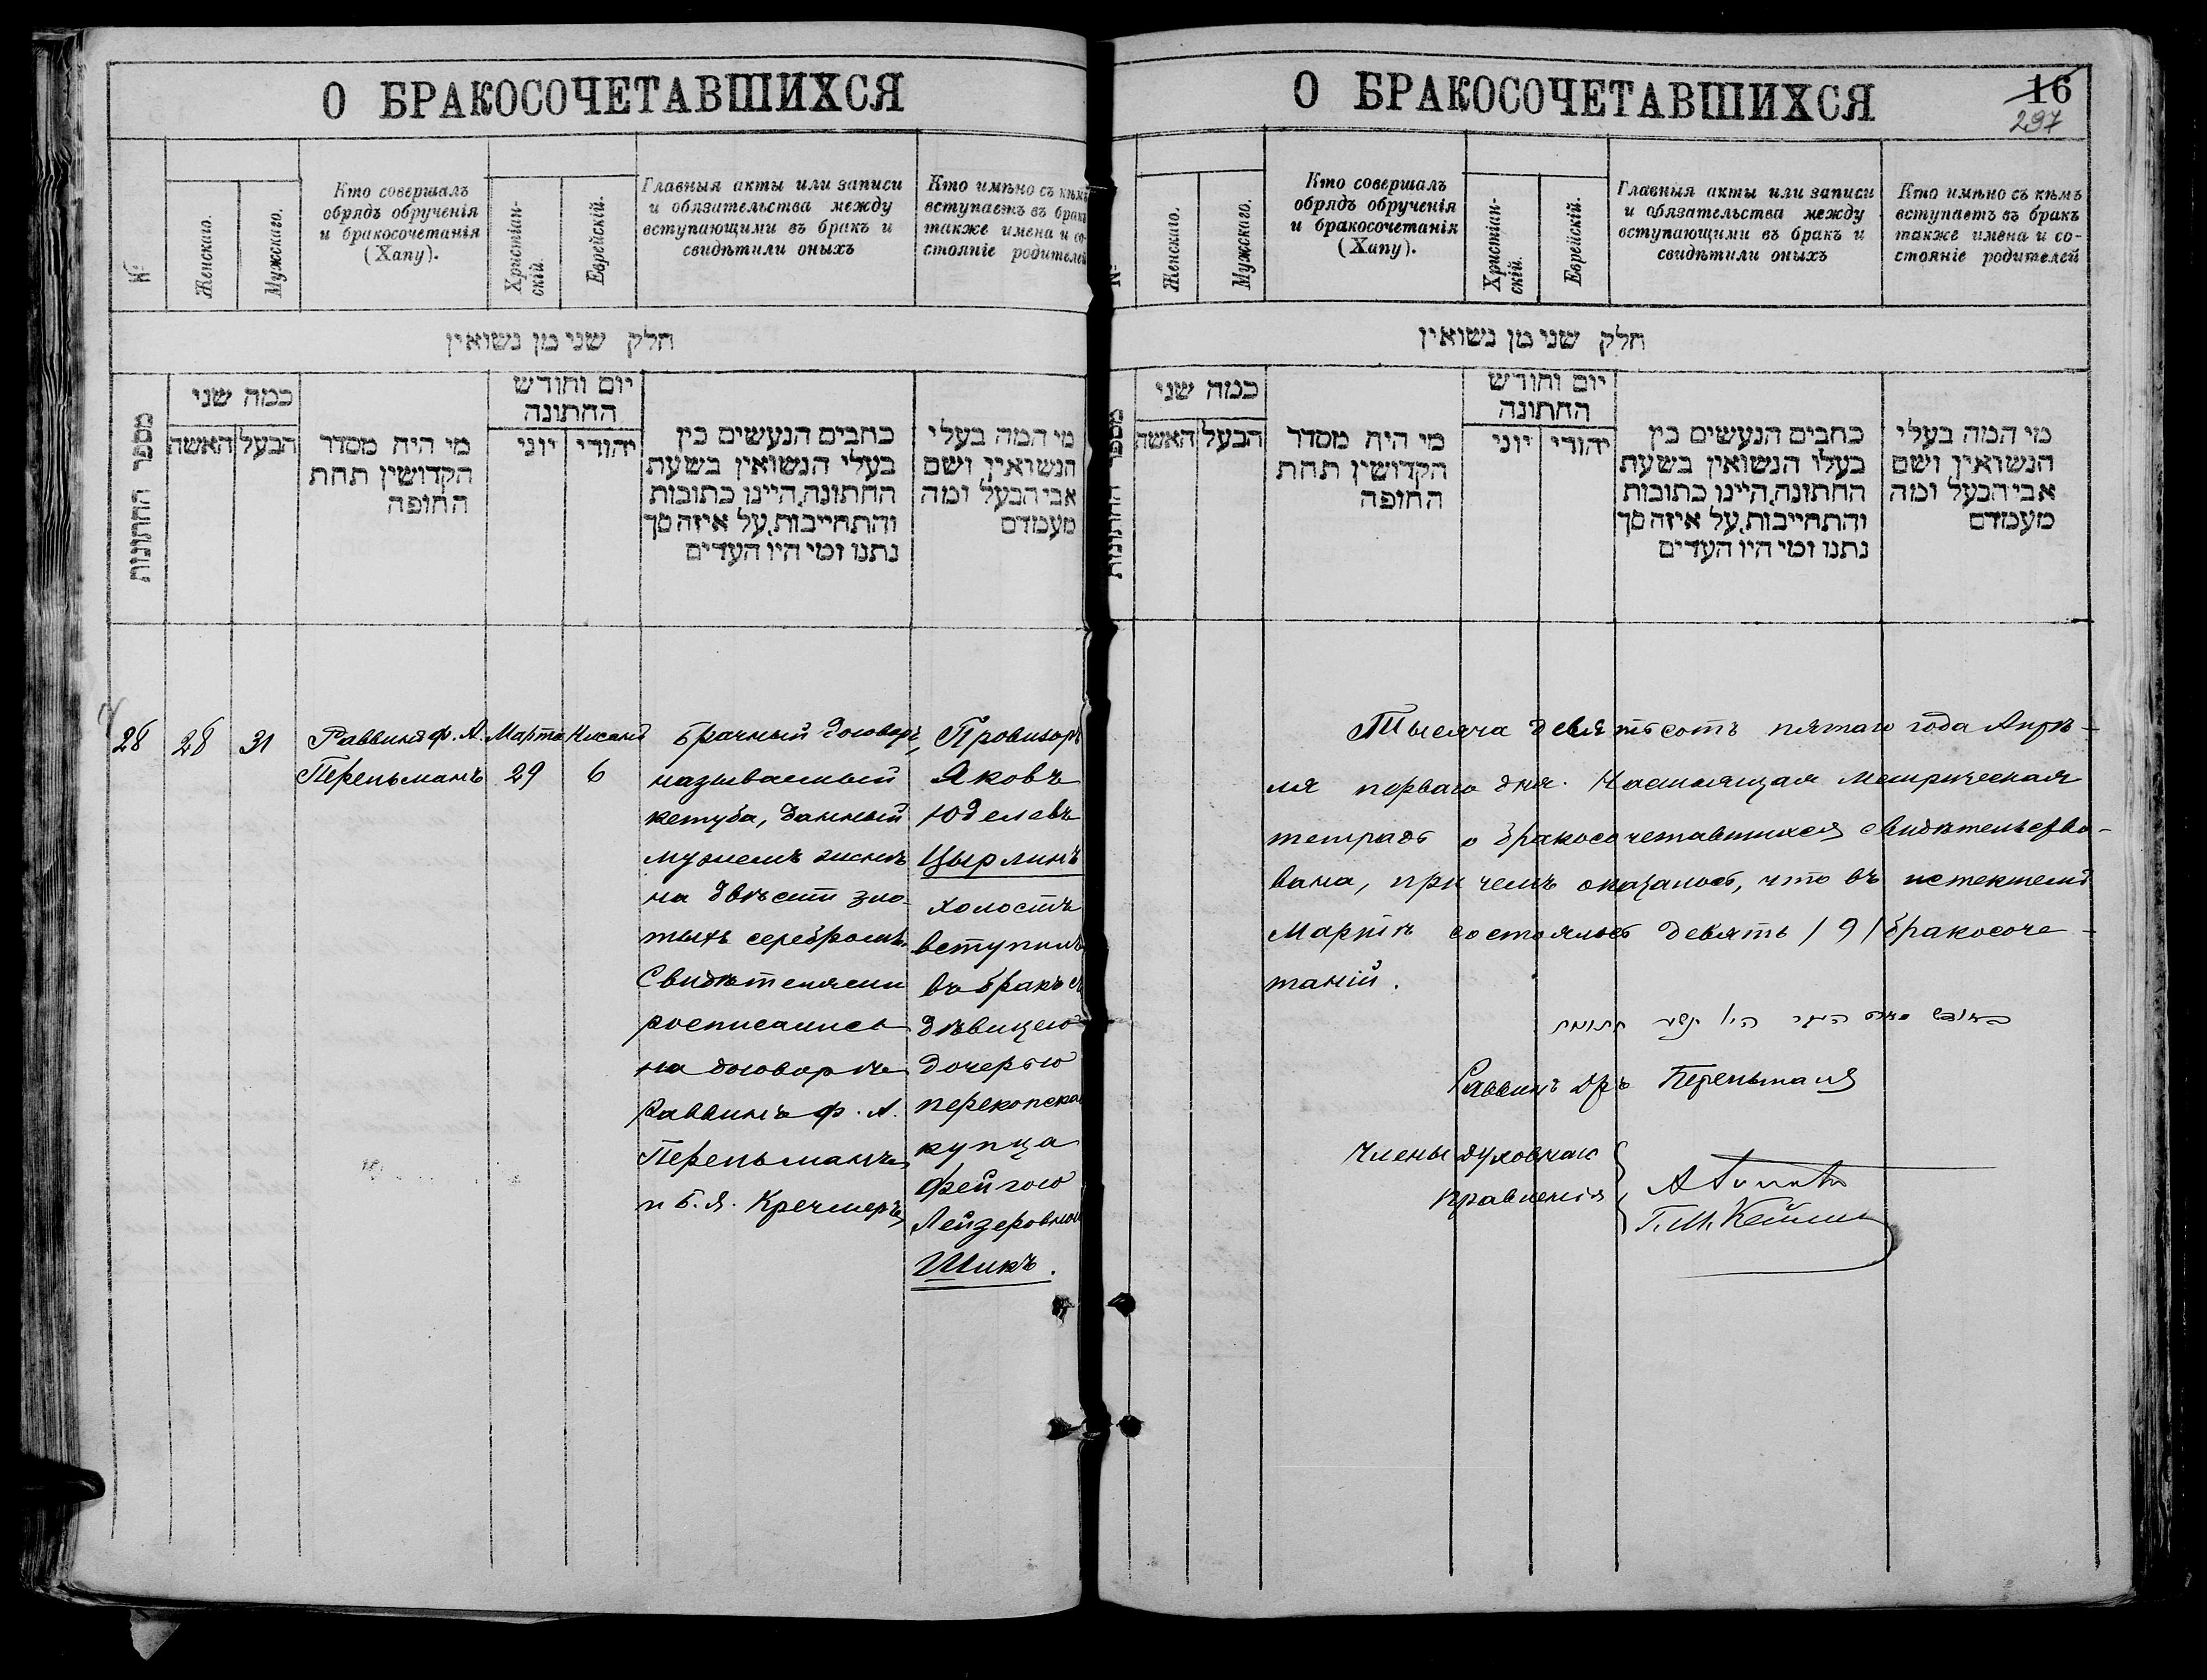 О БРАКОСОЧЕТАВШИХСЯ
№
Женскаго.
Мужскаго.
Кто совершалъ
обрядъ обрученія
и бракосочетанія
(Хапу).
Христіан-
скій.
Еврейскій.
Главныя акты или записи
и обязательства между
вступающими въ бракъ и
свидѣтили оныхъ
Кто имѣно съ кѣмъ
вступаетъ въ бракъ
также имена и со-
стояніе родителей
חלק שני מן נשואין
מספר החתונות
כמה שני
האשה
הבעל
מי היה מסדר
הקדושין תחת
החופה
יום וחודש
החתונה
יוני
יהודי
כתבים הנעשים בין
בעלי הנשואין בשעת
החתונה, היינו כתובות
והתחייבות, על איזה סך
נתנו ומי היו העדים
מי המה בעלי
הנשואין ושם
אבי הבעל ומה
מעמדם
28
28
31
Раввинъ ф. А.
Перельманъ
Марта
29
Нисанъ
6
Брачный договоръ,
называемый
кетуба, данный
мужемъ женѣ
на двѣсти зло-
тыхъ серебромъ.
Свидѣтелями
росписались
на договорѣ
Раввинъ ф. А.
Перельманъ
и Б. Я. Кречмеръ
Провизоръ
Яковъ
Юделевъ
Цырлинъ
холостъ
вступилъ
въ бракъ съ
дѣвицею
дочерью
перекопскаго
купца
Фейгою
Лейзеровною
Шикъ.
О БРАКОСОЧЕТАВШИХСЯ
16
297
№
Женскаго.
Мужскаго.
Кто совершалъ
обрядъ обрученія
и бракосочетанія
(Хапу).
Христіан-
скій.
Еврейскій.
Главныя акты или записи
и обязательства между
вступающими въ бракъ и
свидѣтили оныхъ
Кто имѣно съ кѣмъ
вступаетъ въ бракъ
также имена и со-
стояніе родителей
חלק שני מן נשואין
מספר החתונות
כמה שני
האשה
הבעל
מי היה מסדר
הקדושין תחת
החופה
יום וחודש
החתונה
יוני
יהודי
כתבים הנעשים בין
בעלו הנשואין בשעת
החתונה, היינו כתובות
והתחייבות, על איזה סך
נתנו ומי היו העדים
מי המה בעלי
הנשואין ושם
אבי הבעל ומה
מעמדם
Тысяча девятьсотъ пятаго года Апрѣ-
ля перваго дня. Настоящая Метрическая
тетрадь о бракосочетавшихся свидѣтельство-
вана, при чемъ оказалось, что въ истекшемъ
Мартѣ состоялось девять /9/ бракосоче-
таній.
Раввинъ Дръ Перельманъ
Члены духовнаго
правленія